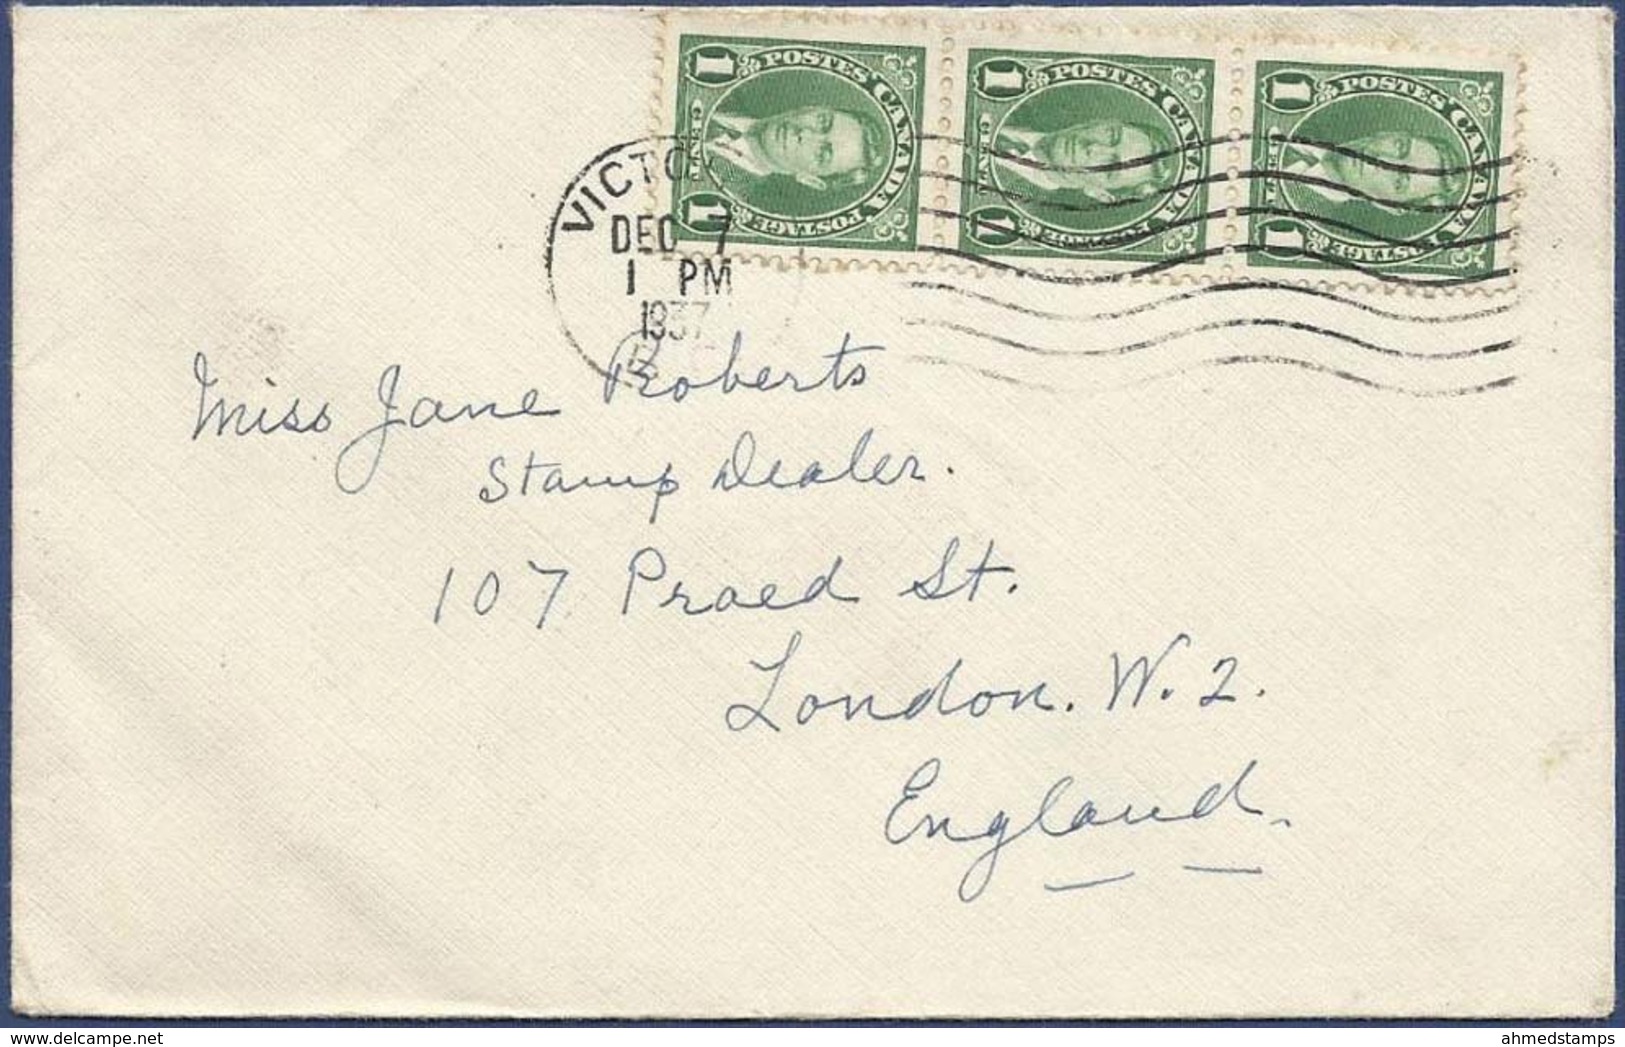 1 POSTES CANADA POSTAGE CENTS 1
1 POSTES CANADA POSTAGE CENTS 1
1 POSTES CANADA POSTAGE CENTS 1
VICTO
DEC 7
1 PM
1937
Miss Jane Roberts
Stamp Dealer.
107 Praed St.
London. W. 2.
England.
ahmedstamps